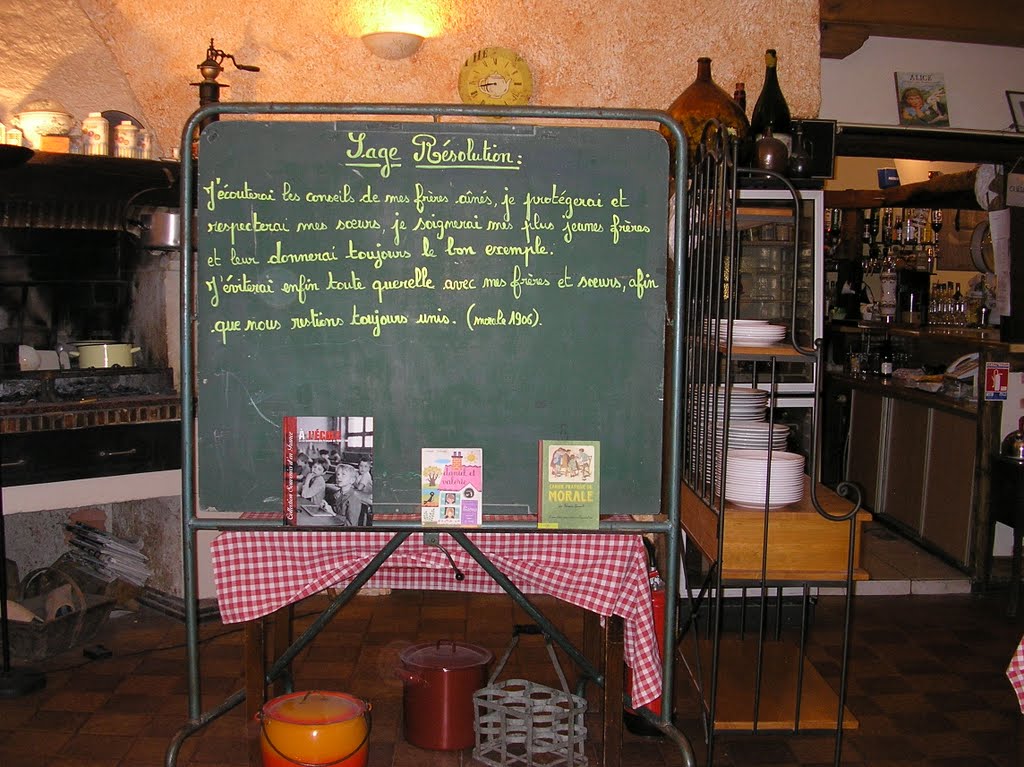 ALICE
Sage Résolution:
J'écouterai les conseils de mes frères aînés, je protégerai et
respecterai mes sœurs, je soignerai mes plus jeunes frères
et leur donnerai toujours le bon exemple.
J'éviterai enfin toute querelle avec mes frères et sœurs, afin
que nous restions toujours unis. (morale 1906).
À L'ÉCOLE
daniel et
valérie
MORALE